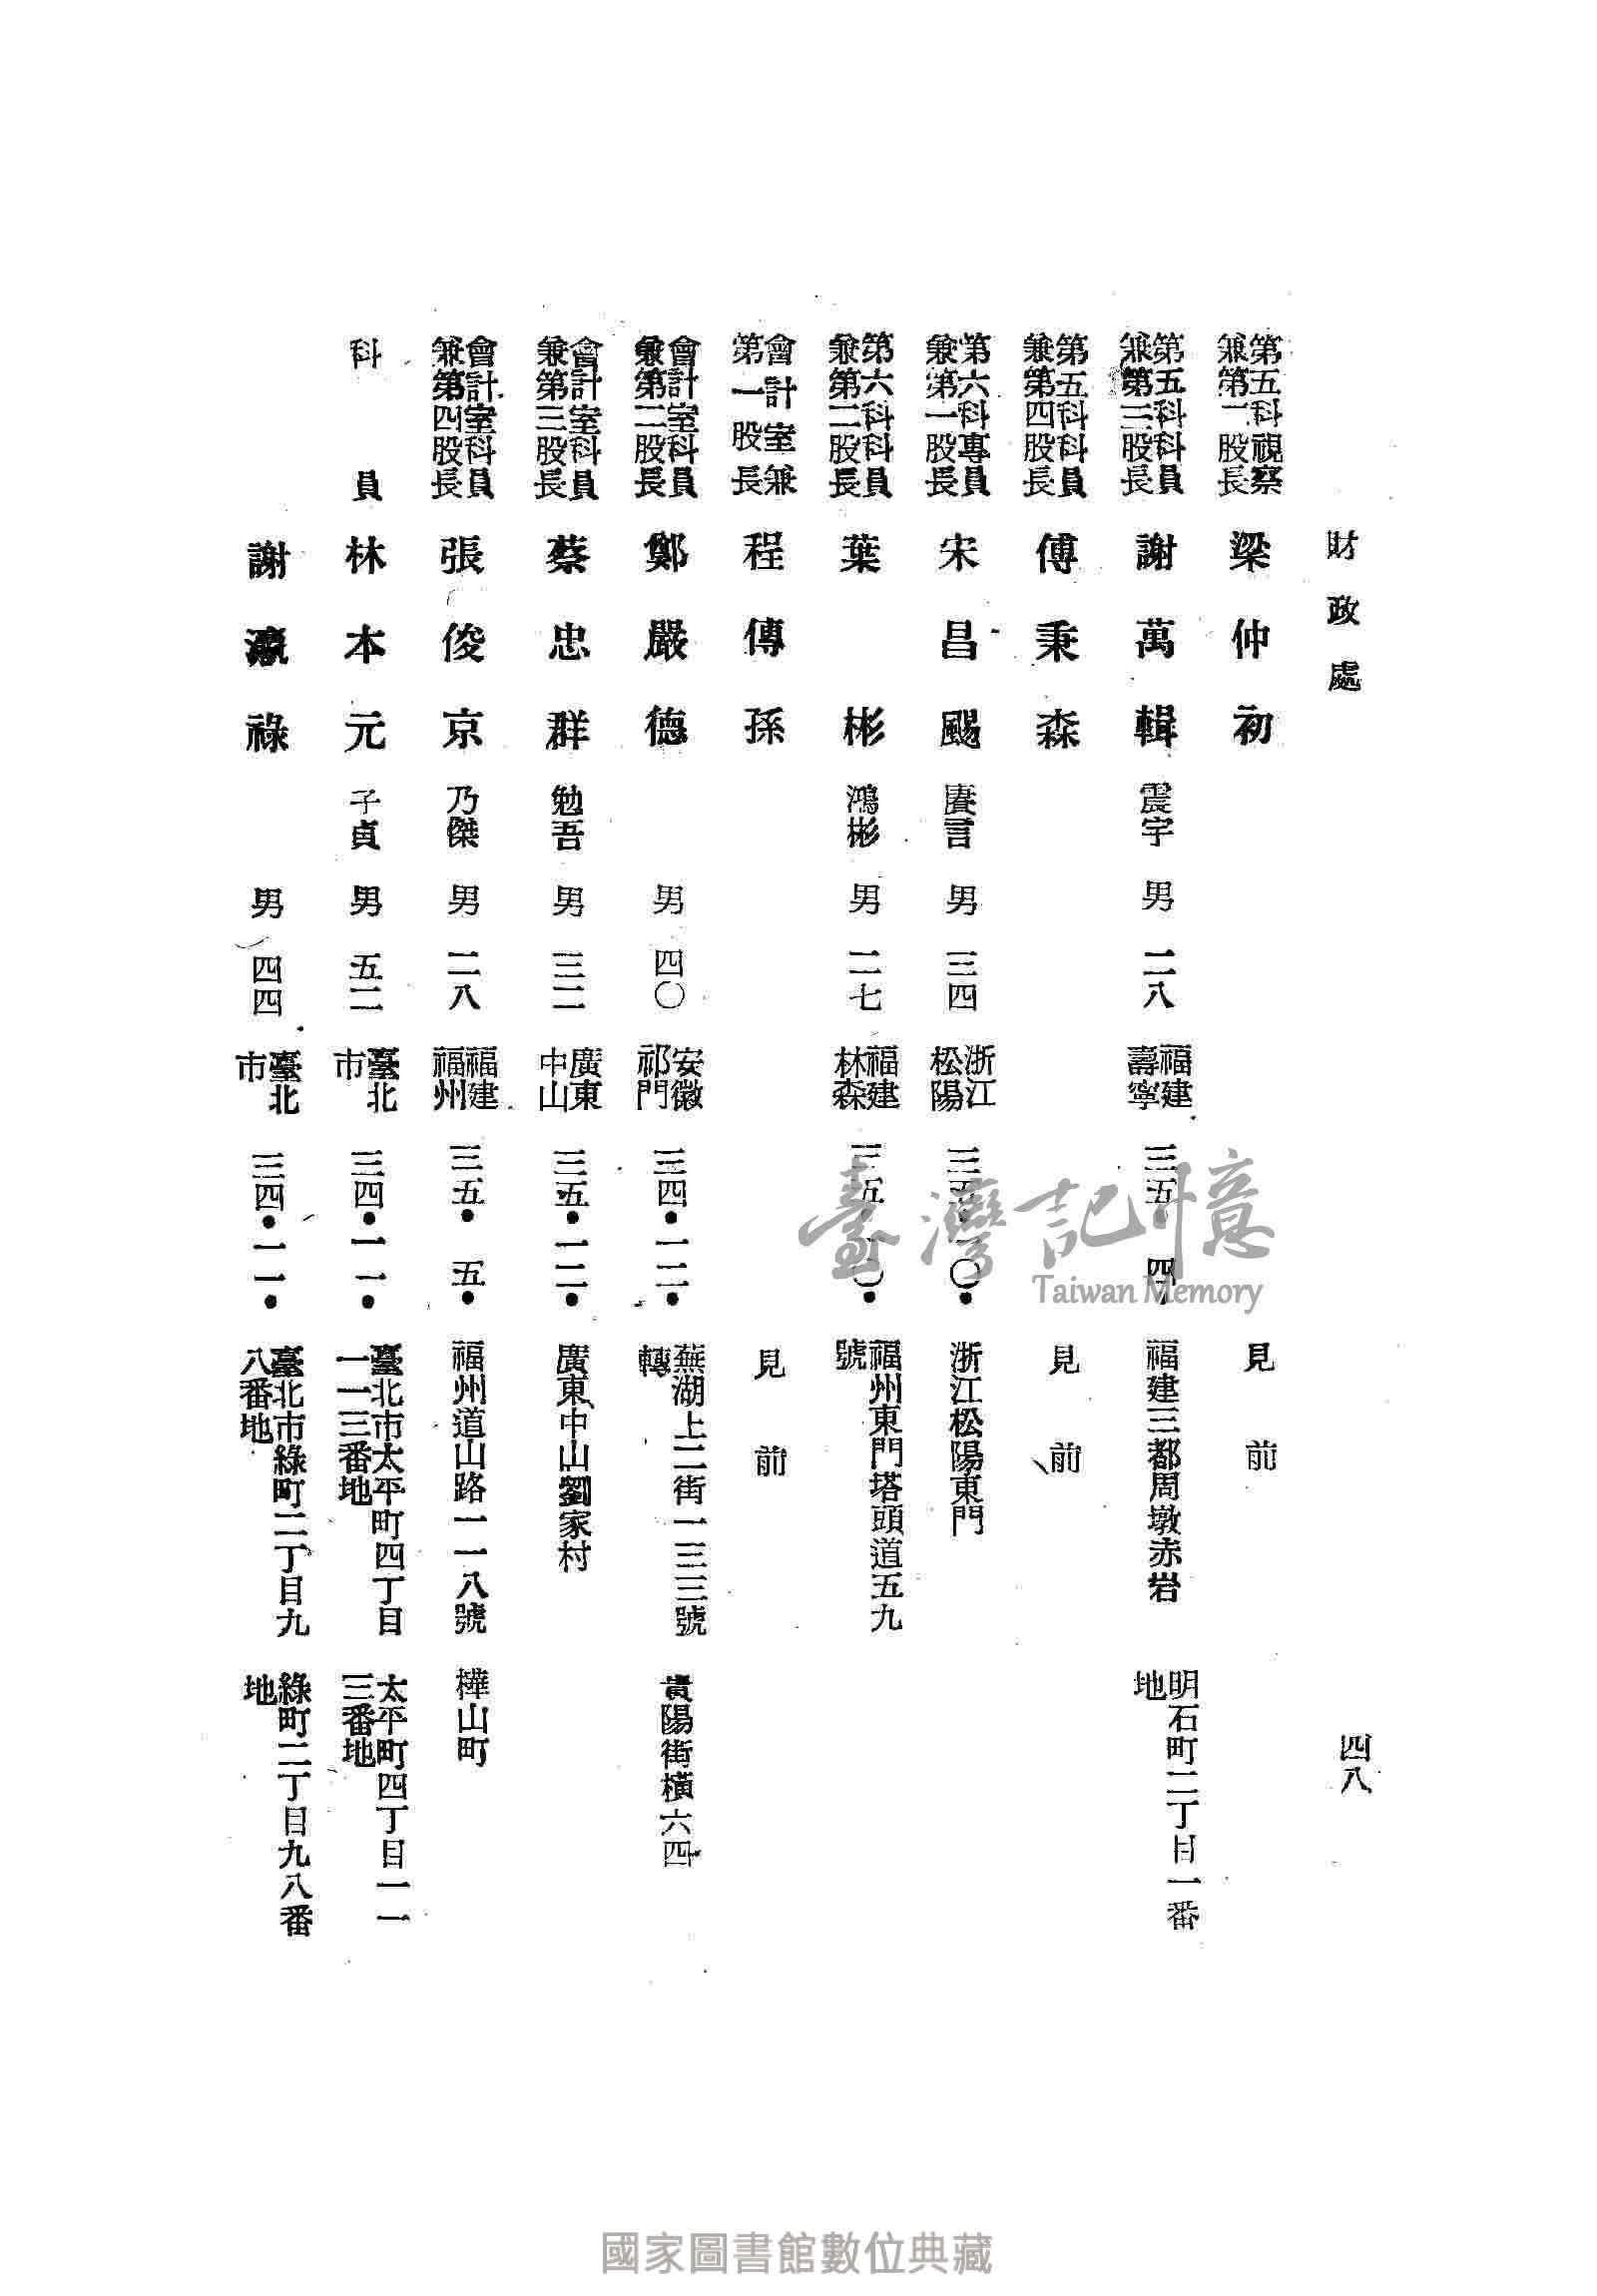 財政處
四八
第五科視察兼第二股長 梁仲初 見前
第五科科員兼第三股長 謝萬輯 震宇 男 二八 福建壽寧 三五・四・ 福建三都周墩赤岩 明石町二丁目一番地
第五科科員兼第四股長 傅秉森 見前
第六科專員兼第一股長 宋昌颺 賡言 男 三四 浙江松陽 三五・一〇・ 浙江松陽東門
第六科科員兼第二股長 葉彬 鴻彬 男 二七 福建林森 三五・一〇・ 福州東門塔頭道五九號
會計室兼第一股長 程傳孫 見前
會計室科員兼第二股長 鄭嚴德 男 四〇 安徽祁門 三四・一二・ 蕪湖上二街一三三號轉 貴陽街橫六四
會計室科員兼第三股長 蔡忠群 勉吾 男 三二 廣東中山 三五・一二・ 廣東中山劉家村
會計室科員兼第四股長 張俊京 乃傑 男 二八 福建福州 三五・五・ 福州道山路一一八號 樺山町
科員 林本元 子貞 男 五二 臺北市 三四・一一・ 臺北市太平町四丁目一一三番地 太平町四丁目一一三番地
謝 祿 男 四四 臺北市 三四・一一・ 臺北市綠町二丁目九八番地 綠町二丁目九八番地
臺灣記憶
Taiwan Memory
國家圖書館數位典藏